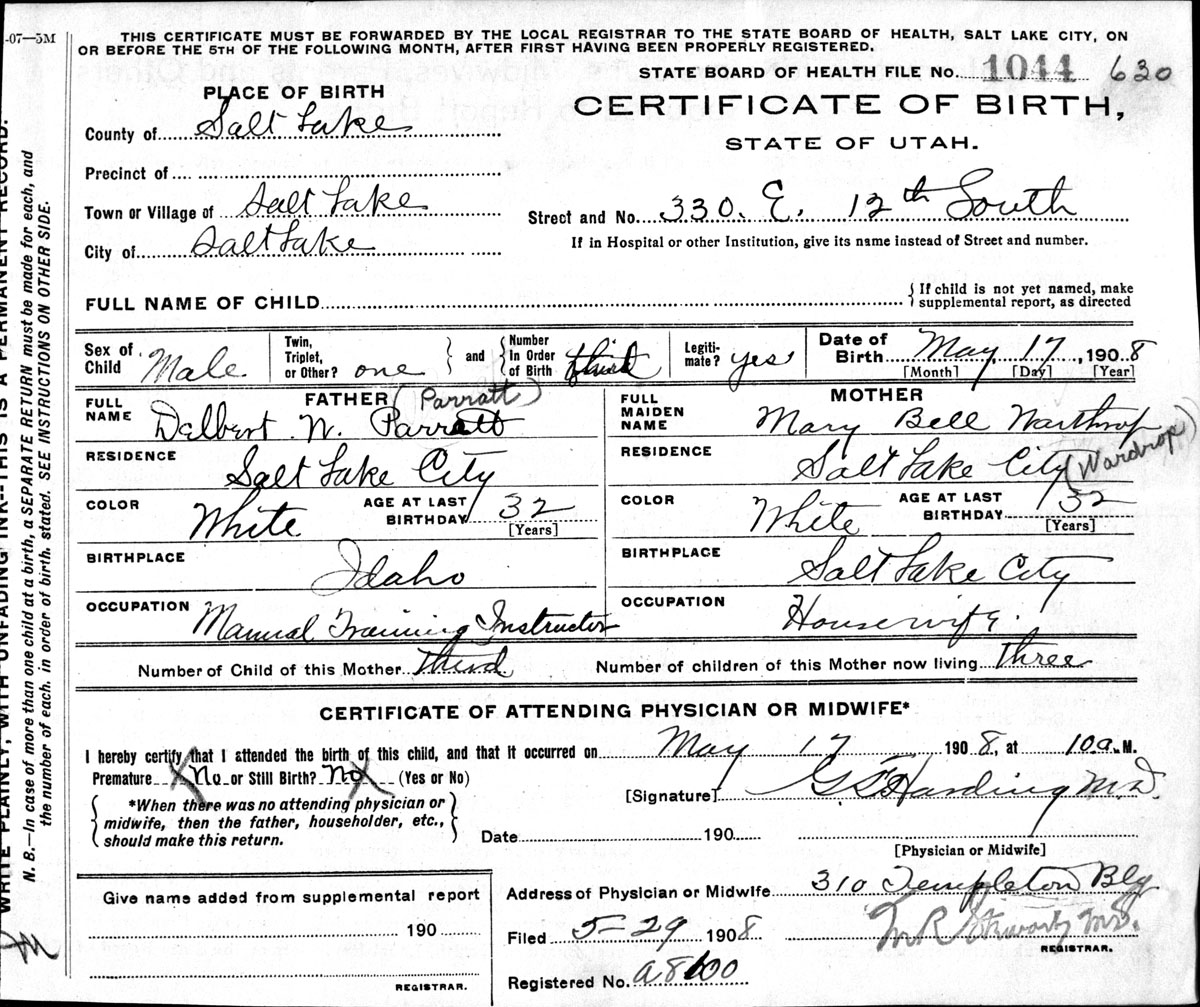 -07—5M
THIS CERTIFICATE MUST BE FORWARDED BY THE LOCAL REGISTRAR TO THE STATE BOARD OF HEALTH, SALT LAKE CITY, ON
OR BEFORE THE 5TH OF THE FOLLOWING MONTH, AFTER FIRST HAVING BEEN PROPERLY REGISTERED.
STATE BOARD OF HEALTH FILE No. 1044 630
PLACE OF BIRTH
CERTIFICATE OF BIRTH,
STATE OF UTAH.
County of Salt Lake
Precinct of
Town or Village of Salt Lake
City of Salt Lake
Street and No. 330. E. 12th South
If in Hospital or other Institution, give its name instead of Street and number.
FULL NAME OF CHILD { If child is not yet named, make
supplemental report, as directed
Sex of Child Male
Twin, Triplet, or Other? one } and { Number In Order of Birth third
Legiti-mate? yes
Date of Birth May 17, 1908
[Month] [Day] [Year]
FATHER (Parratt)
FULL NAME Delbert W. Parratt
RESIDENCE Salt Lake City
COLOR White AGE AT LAST BIRTHDAY 32
[Years]
BIRTHPLACE Idaho
OCCUPATION Manual Training Instructor
MOTHER
FULL MAIDEN NAME Mary Bell Warthrop
(Wardrop)
RESIDENCE Salt Lake City
COLOR White AGE AT LAST BIRTHDAY 32
[Years]
BIRTHPLACE Salt Lake City
OCCUPATION Housewife.
Number of Child of this Mother third Number of children of this Mother now living three
CERTIFICATE OF ATTENDING PHYSICIAN OR MIDWIFE*
I hereby certify that I attended the birth of this child, and that it occurred on May 17 1908, at 10 a. M.
Premature No or Still Birth? No (Yes or No)
{ *When there was no attending physician or
midwife, then the father, householder, etc.,
should make this return. }
[Signature] G S Harding M.D.
Date 190
[Physician or Midwife]
Give name added from supplemental report
190
REGISTRAR.
Address of Physician or Midwife 310 Templeton Blg
Filed 5-29 1908
M R Stewart M.D.
REGISTRAR.
Registered No. a8100
WRITE PLAINLY, WITH UNFADING INK--THIS IS A PERMANENT RECORD.
N. B.—In case of more than one child at a birth, a SEPARATE RETURN must be made for each, and
the number of each, in order of birth, stated. SEE INSTRUCTIONS ON OTHER SIDE.